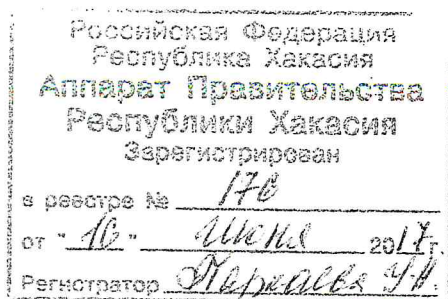 Российская Федерация
Республика Хакасия
Аппарат Правительства
Республики Хакасия
Зарегистрирован
в реестре №
от "16" июня 2017г.
Регистратор